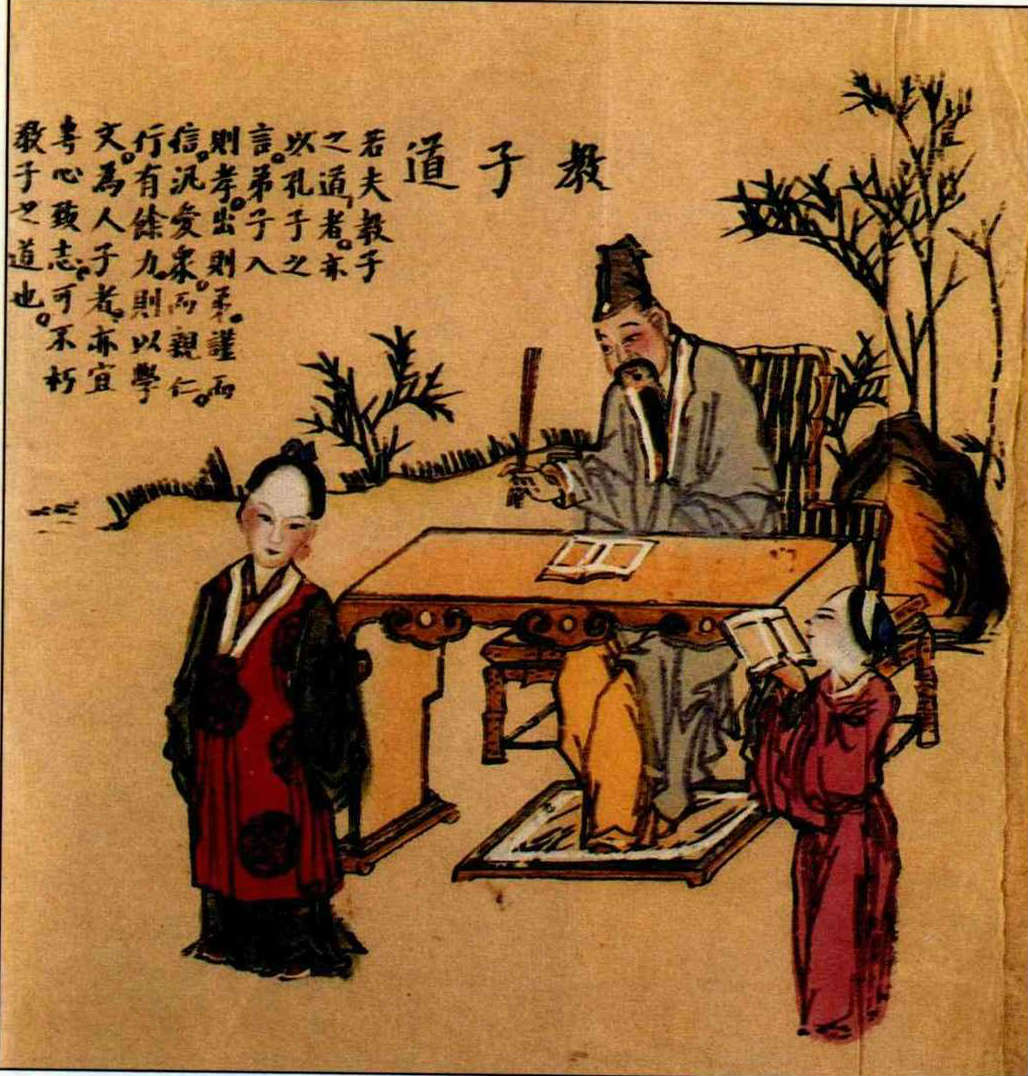 教子道
若夫教子
之道者。亦
以孔子之
言。弟子入
則孝。出則弟。謹而
信。汎愛衆。而親仁。
行有餘力。則以學
文。為人子者。亦宜
專心致志。可不朽
教子之道也。